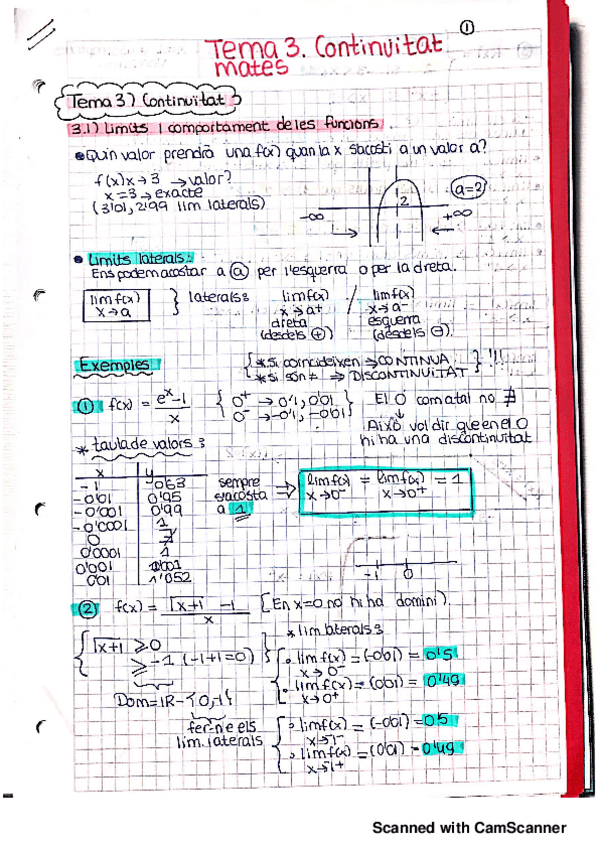 ①
Tema 3. Continuitat
mates
Tema 3) Continuitat
3.1) Límits i comportament de les funcions
Quin valor prendrà una f(x) quan la x s'acosti a un valor a?
f(x) x→3 → valor?
x=3 → exacte
(3'01, 2'99 lim laterals)
a=2
2
-∞
+∞
Límits laterals:
Ens podem acostar a ⓐ per l'esquerra o per la dreta.
lim f(x)
x→a
} laterals:
lim f(x)
x→a+
dreta
(desde ls ⊕)
/
lim f(x)
x→a-
esquerra
(desde ls ⊖)
Exemples
* si coincideixen ⇒ CONTINUA
* si són ≠ ⇒ DISCONTINUITAT
} !!!
① f(x) = e^x-1 / x
{ 0+ → 0'1, 0'01
0- → -0'1, -0'01 }
El 0 com a tal no ∄
Això vol dir que en el 0
hi ha una discontinuitat
* taula de valors:
x | y
-1 | 0'63
-0'01 | 0'95
-0'001 | 0'99
-0'0001 | 1
0 | ∄
0'0001 | 1
0'001 | 1'001
0'01 | 1'052
sempre
s'acosta
a 1
⇒
lim f(x) = lim f(x) = 1
x→0- x→0+
-1 0
② f(x) = √x+1 -1 / x [En x=0 no hi ha domini).
√x+1 ≥ 0
≥ -1 (-1+1=0)
Dom=IR-{0,-1}
fer-ne els
lim. laterals
* lim laterals:
lim f(x) = (-0'01) = 0'5
x→0-
lim f(x) = (0'01) = 0'49
x→0+
lim f(x) = (-0'01) = 0'5
x→-1-
lim f(x) = (0'01) = 0'49
x→-1+
Scanned with CamScanner